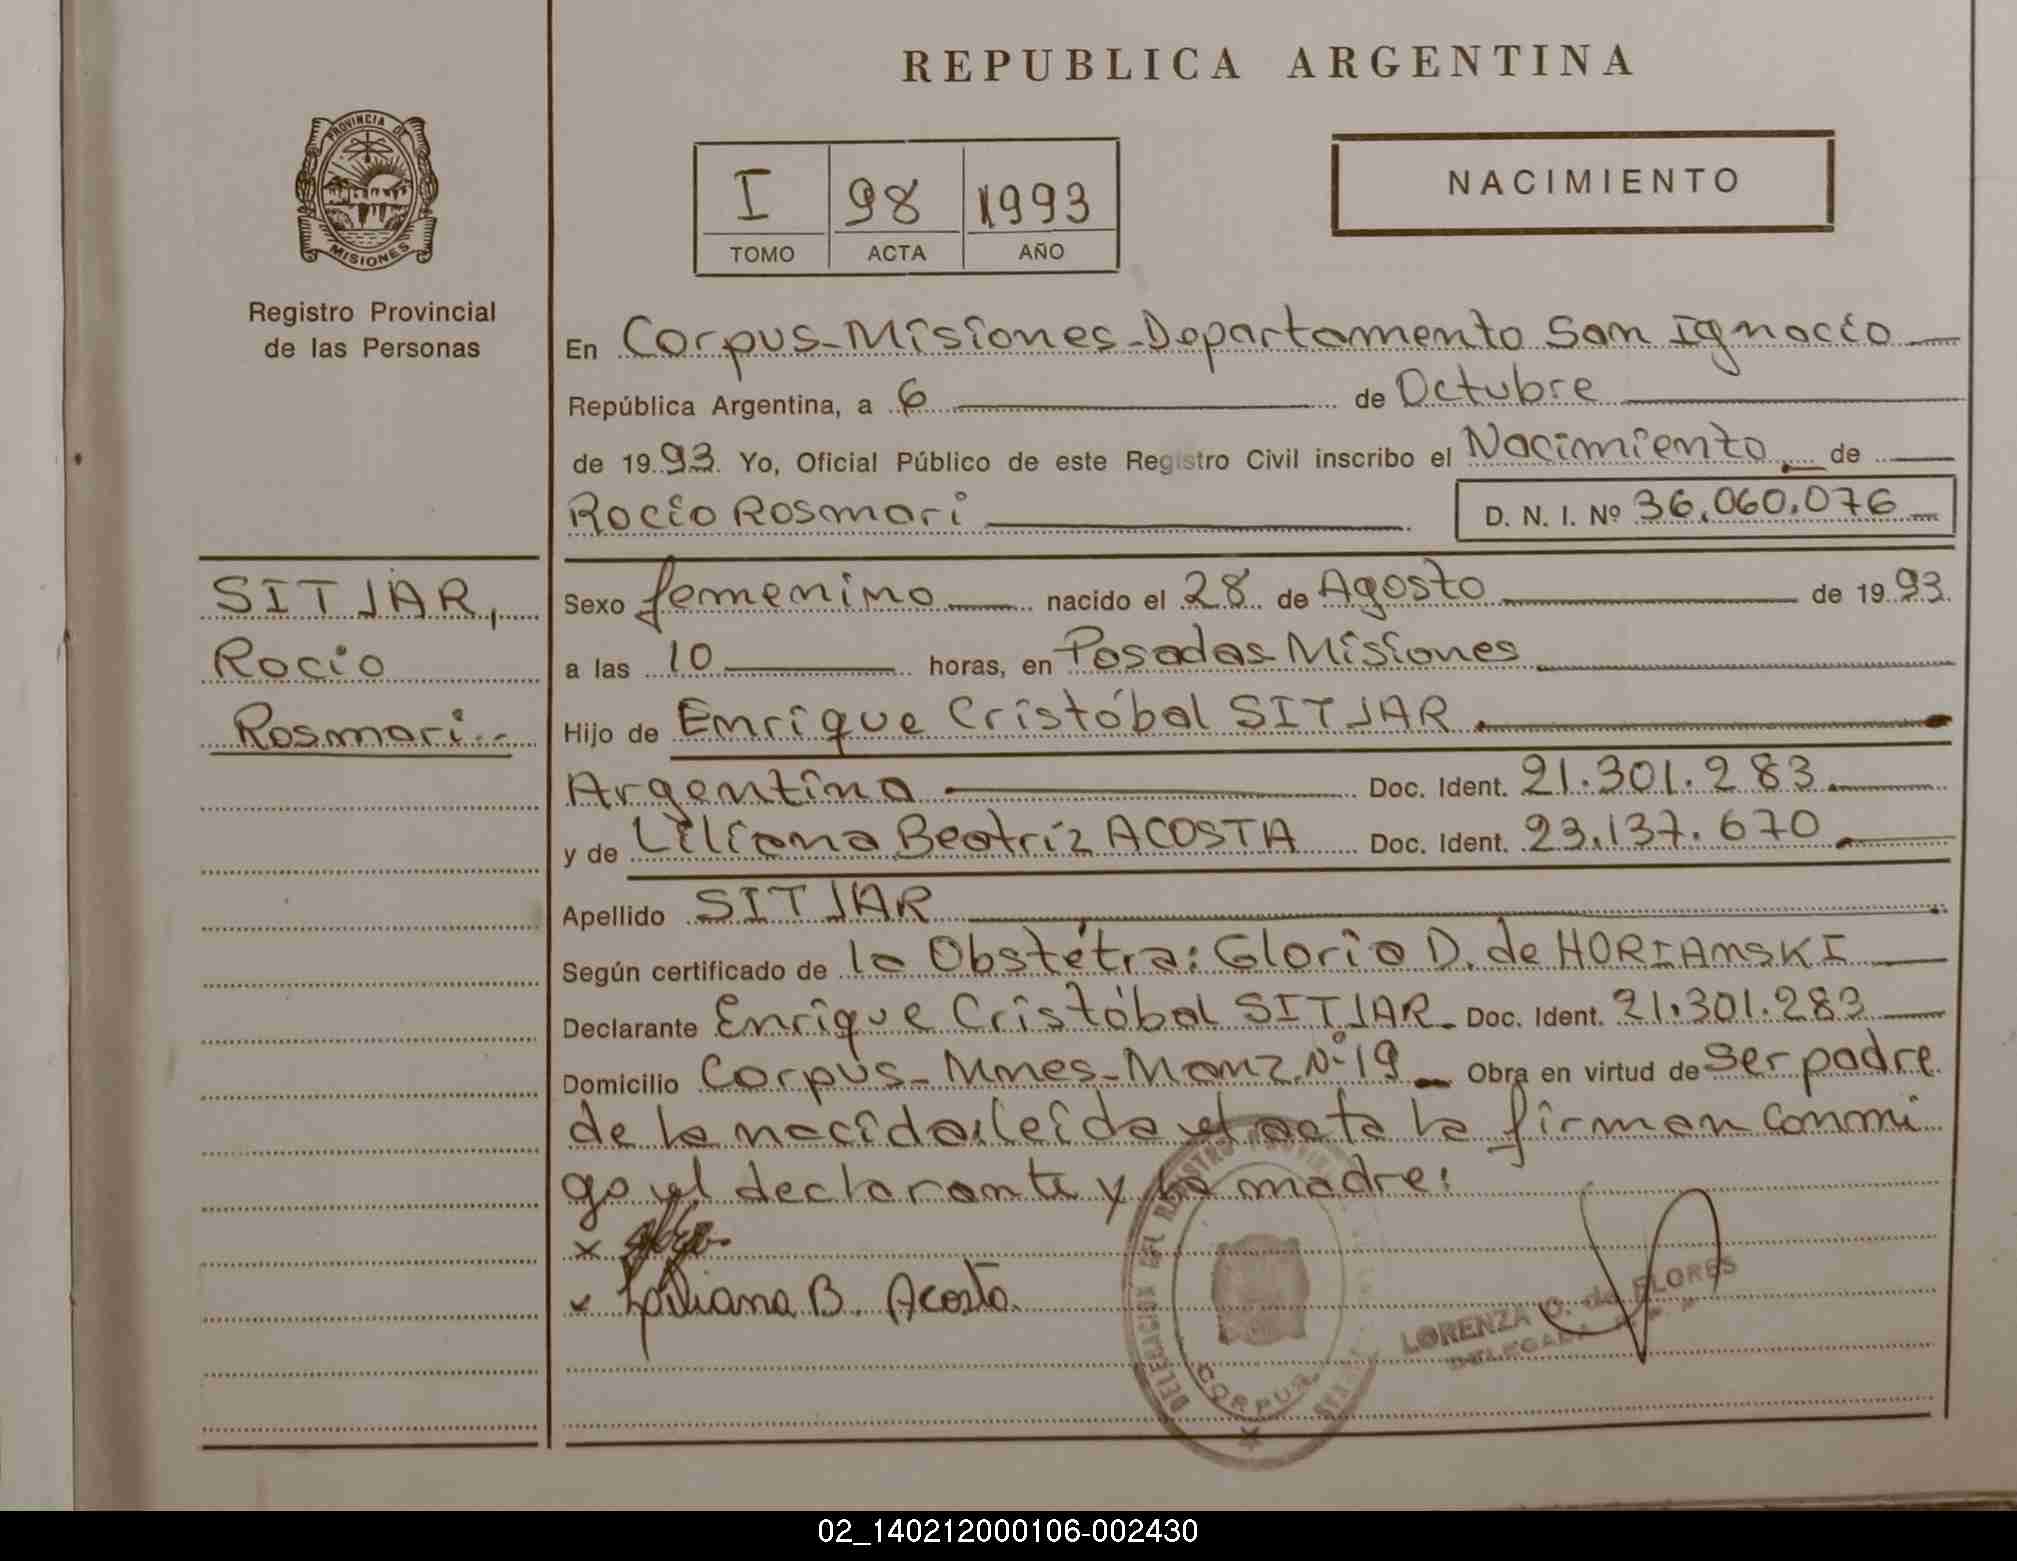 REPUBLICA ARGENTINA
PROVINCIA DE
MISIONES
Registro Provincial
de las Personas
I 98 1993
TOMO ACTA AÑO
NACIMIENTO
En Corpus-Misiones-Departamento San Ignacio
República Argentina, a 6 de Octubre
de 1993. Yo, Oficial Público de este Registro Civil inscribo el Nacimiento de
Rocío Rosmari D. N. I. Nº 36.060.076
SITJAR,
Rocio
Rosmari.-
Sexo femenino nacido el 28 de Agosto de 1993.
a las 10 horas, en Posadas Misiones
Hijo de Enrique Cristóbal SITJAR
Argentino Doc. Ident. 21.301.283
y de Liliana Beatríz ACOSTA Doc. Ident. 23.137.670
Apellido SITJAR
Según certificado de la Obstétra: Gloria D. de HORIANSKI
Declarante Enrique Cristóbal SITJAR. Doc. Ident. 21.301.283
Domicilio Corpus-Mnes-Manz. Nº 19 Obra en virtud de Ser padre
de la nacida, leída el acta la firman conmi
go el declarante y la madre:
x
x Liliana B. Acosta.
DELEGACION DEL REGISTRO
CORPUS
LORENZA O. de FLORES
DELEGADA
02_140212000106-002430